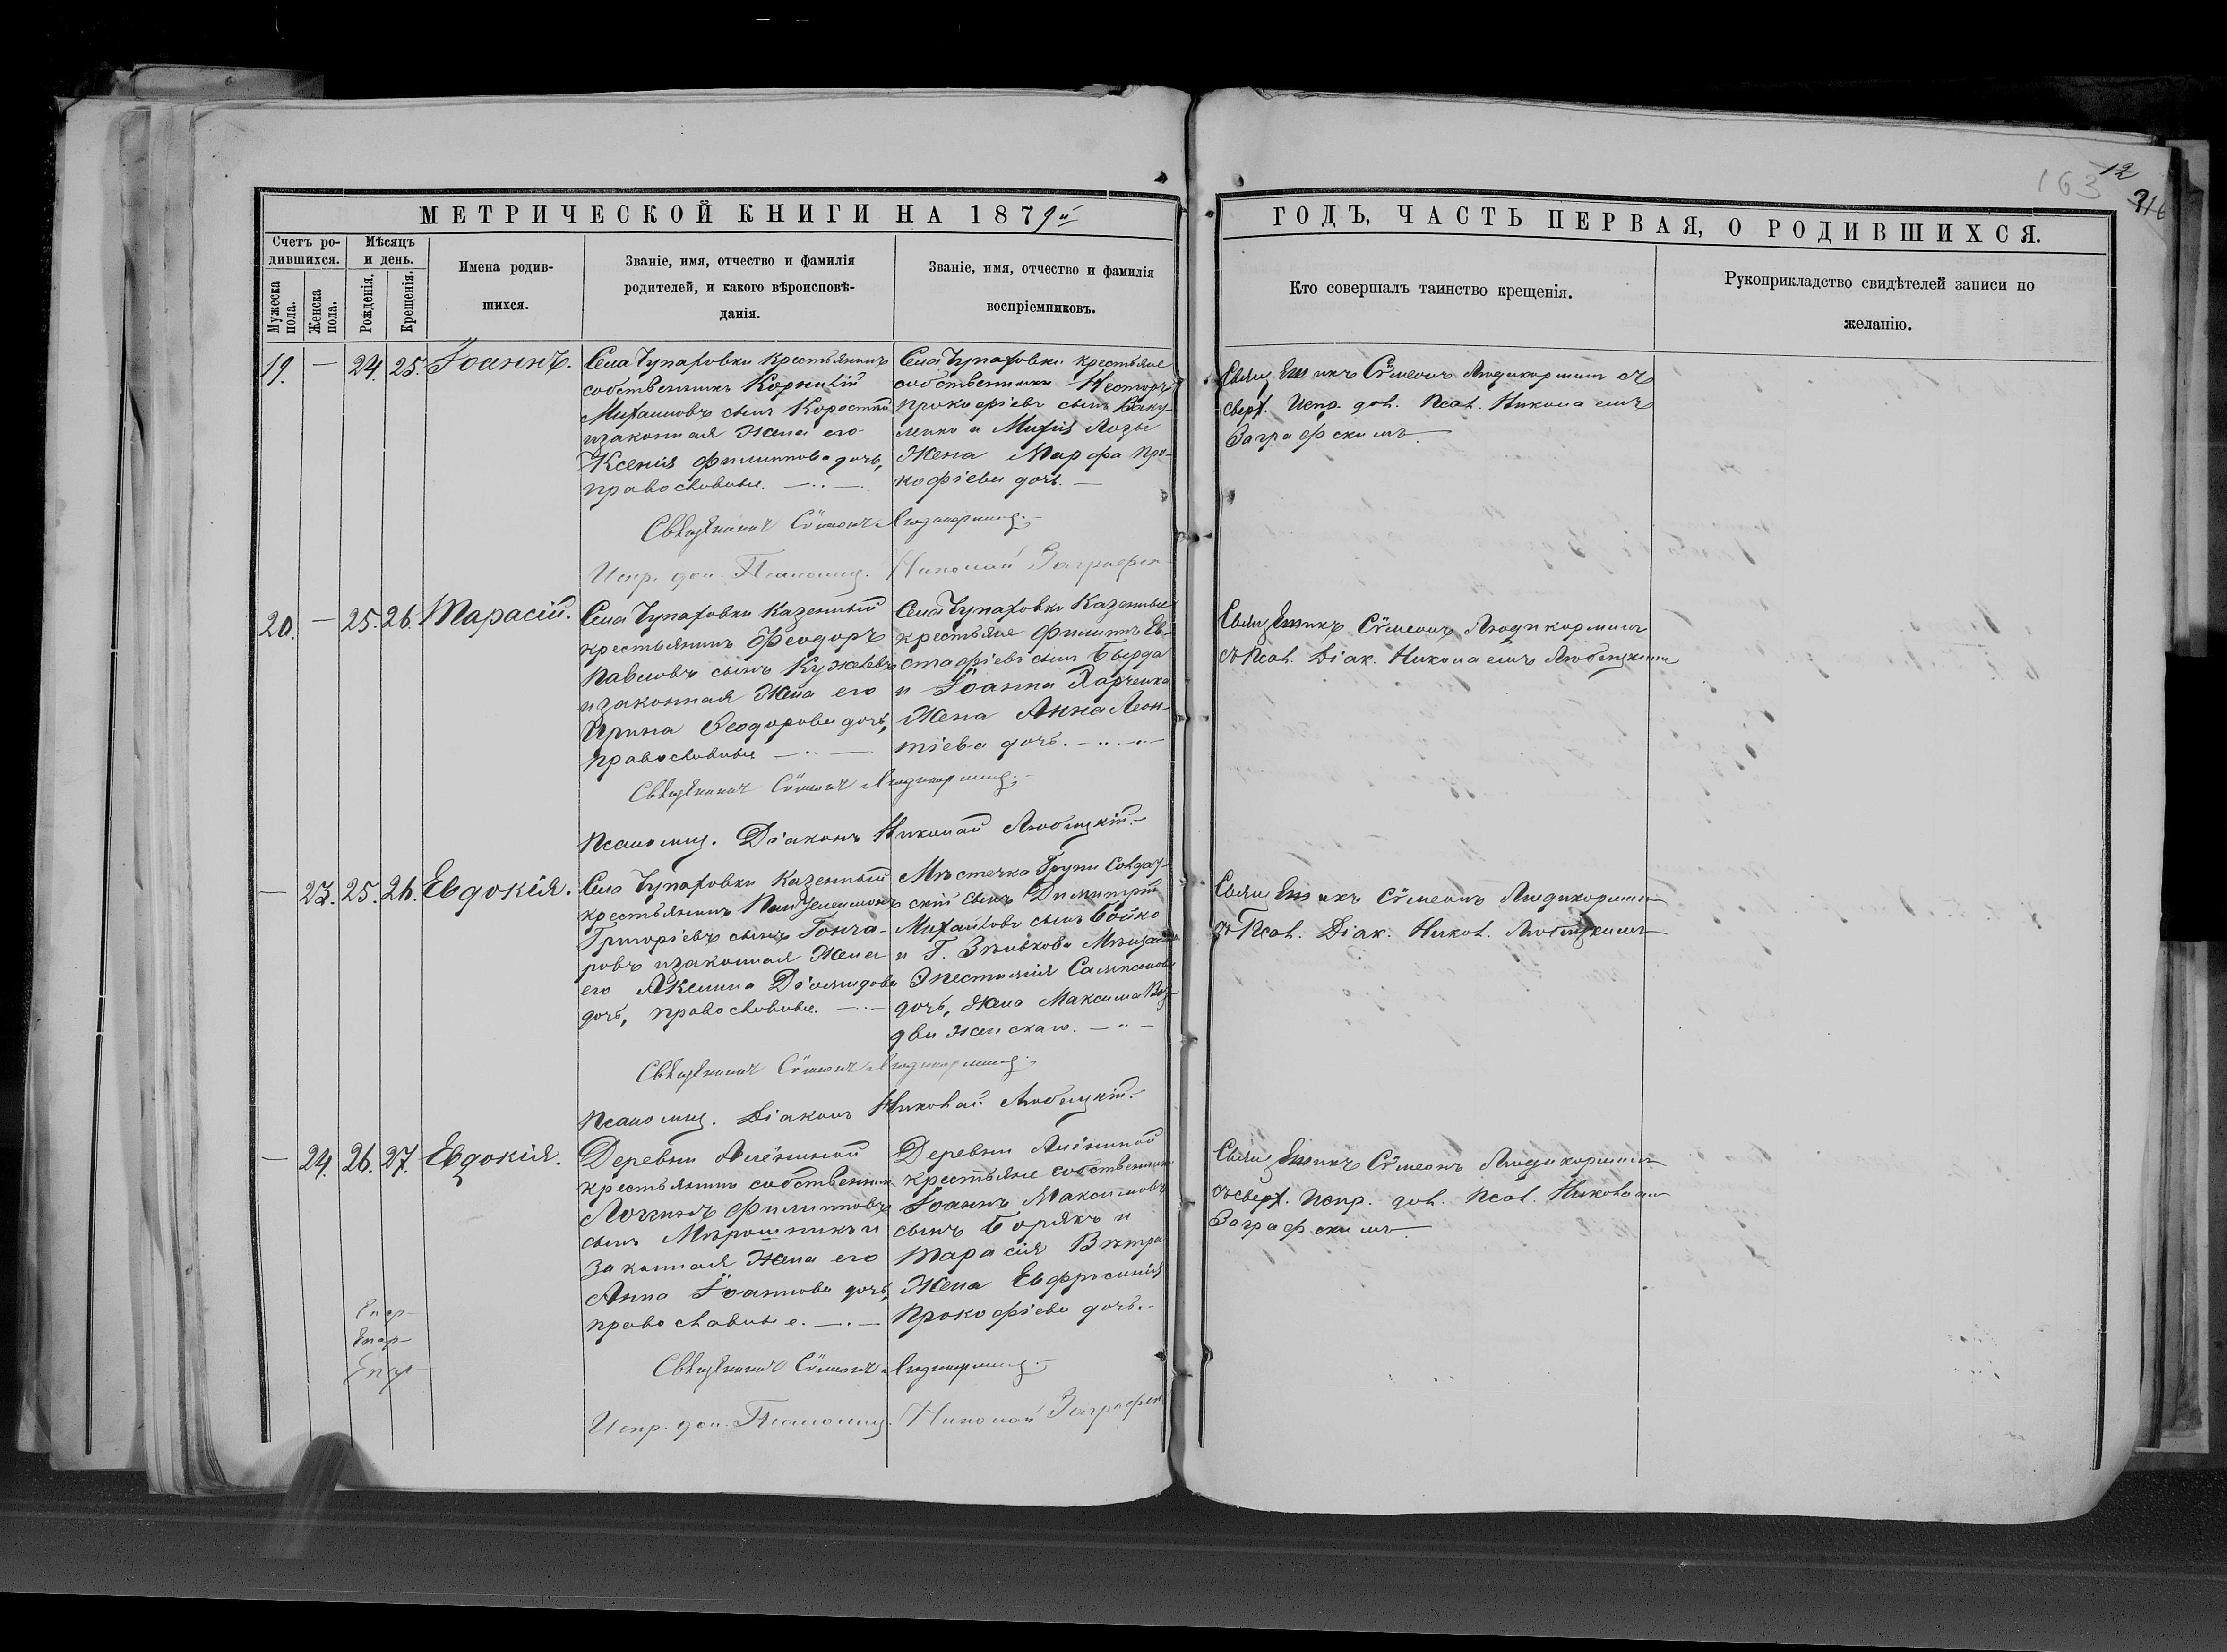 163
12
316
МЕТРИЧЕСКОЙ КНИГИ НА 1879й
ГОДЪ, ЧАСТЬ ПЕРВАЯ, О РОДИВШИХСЯ.
Счетъ ро-
дившихся.
Мужеска
пола.
Женска
пола.
Мѣсяцъ
и день.
Рожденія.
Крещенія.
Имена родив-
шихся.
Званіе, имя, отчество и фамилія
родителей, и какого вѣроисповѣ-
данія.
Званіе, имя, отчество и фамилія
воспріемниковъ.
Кто совершалъ таинство крещенія.
Рукоприкладство свидѣтелей записи по
желанію.
19. — 24. 25. Іоаннъ.
Села Чупаховки крестьянинъ
собственникъ Корнилій
Михаиловъ сынъ
и законная жена его
Ксенія Филиппова дочь,
православные.
Села Чупаховки крестьяне
собственники Несторъ
Прокофіевъ сынъ Ваку-
ленко и Лозы
жена Марфа Про-
кофіева дочь. —
Священникъ Сѵмеонъ Людикорминъ съ
сверх. испр. дол. Псал. Николаемъ
Заграфскимъ.
Священникъ Сѵмеонъ Людикорминъ
Испр. дол. Псаломщ. Николай Заграфск
20. — 25. 26. Тарасій.
Села Чупаховки казенный
крестьянинъ Феодоръ
Павловъ сынъ
и законная жена его
Ирина Феодорова дочь,
православные
Села Чупаховки казенные
крестьяне Филиппъ Ев-
стафіевъ сынъ
и Іоанна Харченка
жена Анна Леон-
тіева дочь.
Священникъ Сѵмеонъ Людикорминъ
съ Псал. Діак. Николаемъ Любицкимъ
Священникъ Сѵмеонъ Людикорминъ
Псаломщ. Діаконъ Николай Любицкій.
— 23. 25. 26. Евдокія.
Села Чупаховки казенный
крестьянинъ Пантелеимонъ
Григоріевъ сынъ Гонча-
ровъ и законная жена
его Акелина Діомидова
дочь, православные.
Мѣстечка Груни Солдат-
скій сынъ Димитрій
Михайловъ сынъ Бойко
и Г. Зѣнькова Мѣщан
Епистимія Сампсонова
дочь, жена Максима Воз-
движенскаго.
Священникъ Сѵмеонъ Людикорминъ
съ Псал. Діак. Никол. Любицкимъ
Священникъ Сѵмеонъ Людикорминъ
Псаломщ. Діаконъ Николай Любицкій.
— 24. 26. 27. Евдокія.
Деревни
крестьянинъ собственникъ
Логгинъ Филипповъ
сынъ Мирошникъ и
законная жена его
Анна Іоаннова дочь,
православные.
Деревни
крестьяне собственники
Іоаннъ Максимовъ
сынъ Борякъ и
Тарасія Вѣтра
жена Евфросинія
Прокофіева дочь.
Священникъ Сѵмеонъ Людикорминъ
съ сверх. испр. дол. Псал. Николаемъ
Заграфскимъ.
Священникъ Сѵмеонъ Людикорминъ
Испр. дол. Псаломщ. Николай Заграфск